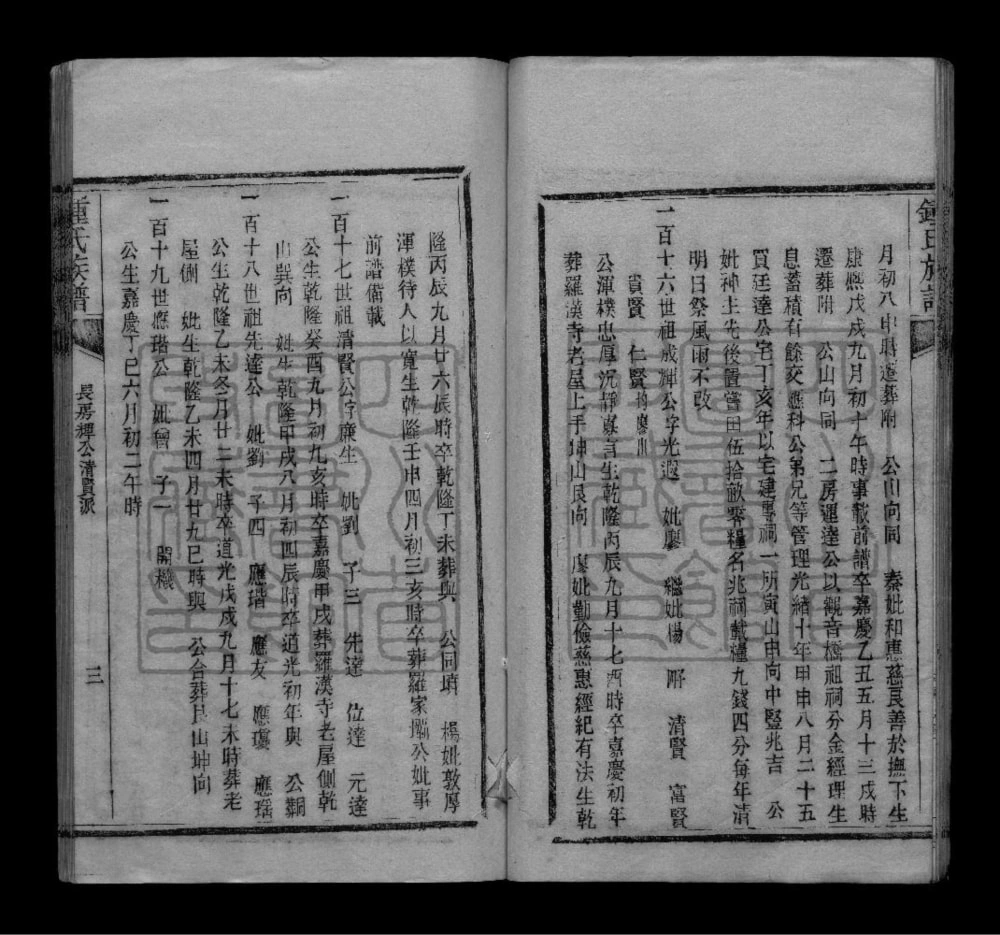 鍾氏族譜
月初八申時遷葬附　公山向同　秦妣和惠慈良善於撫下生
康熙戊戌九月初十午時事載前譜卒嘉慶乙丑五月十三戌時
遷葬附　公山向同　二房運達公以觀音橋祖祠分金經理生
息蓄積有餘交應科公弟兄等管理光緒十年甲申八月二十五
買廷達公宅丁亥年以宅建專祠一所寅山申向中豎兆吉　公
妣神主先後置嘗田伍拾畝零糧名兆祠載糧九錢四分每年清
明日祭風雨不改
一百十六世祖成輝公字光遐　妣廖　繼妣楊　嗣　清賢　富賢
貴賢　仁賢　均廖出
公渾樸忠厚沉靜寡言生乾隆丙辰九月十七酉時卒嘉慶初年
葬羅漢寺老屋上手坤山艮向　廖妣勤儉慈惠經紀有法生乾
隆丙辰九月廿六辰時卒乾隆丁未葬與　公同墳　楊妣敦厚
渾樸待人以寬生乾隆壬申四月初三亥時卒葬羅家壩公妣事
前譜備載
一百十七世祖清賢公字廉生　妣劉　子三　先達　位達　元達
公生乾隆癸酉九月初九亥時卒嘉慶甲戌葬羅漢寺老屋側乾
山巽向　妣生乾隆甲戌八月初四辰時卒道光初年與　公嗣
一百十八世祖先達公　妣劉　子四　應瑎　應友　應瓊　應瑤
公生乾隆乙未冬月廿二未時卒道光戊戌九月十七未時葬老
屋側　妣生乾隆乙未四月廿九巳時與　公合葬艮山坤向
一百十九世應瑎公　妣曾　子一　開機
公生嘉慶丁巳六月初二午時
鍾氏族譜
長房輝公清賢派
三